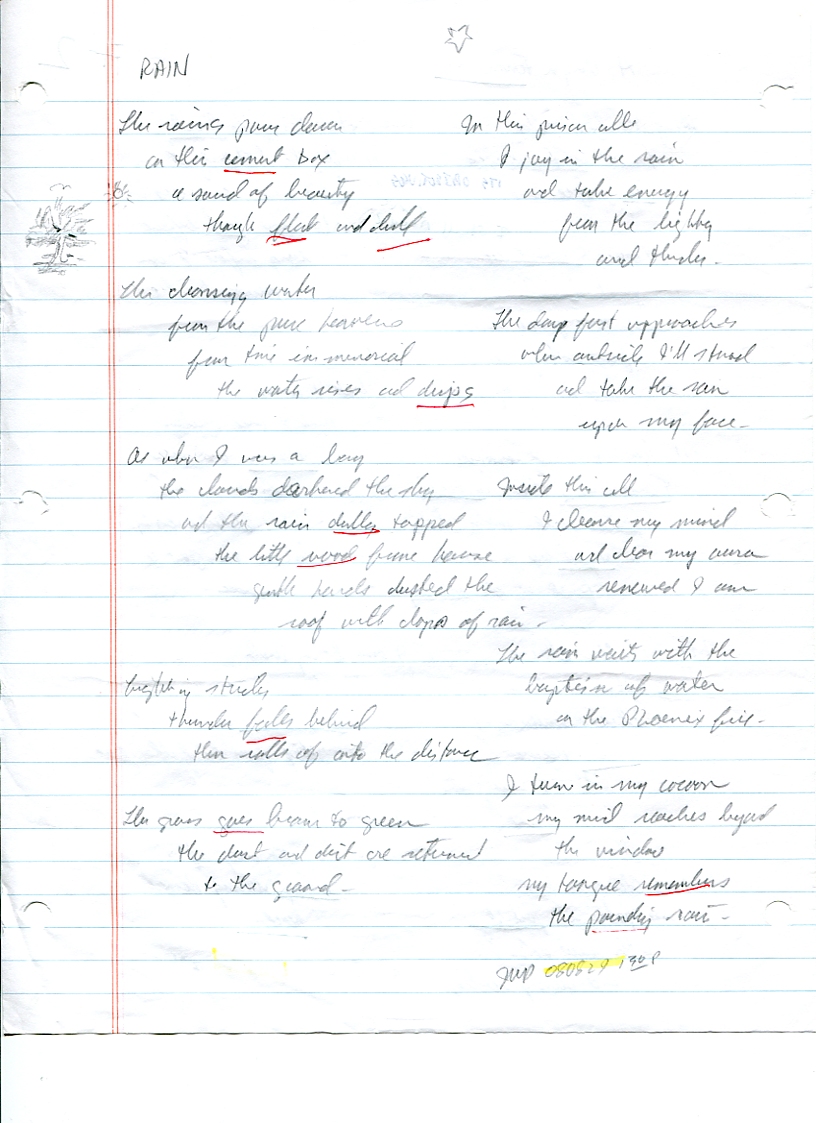 RAIN
The rains pour down
on this cement box
a sound of beauty
though flat and dull
The cleansing water
from the pure heavens
from time immemorial
the water rises and drips
As when I was a boy
the clouds darkened the sky
and the rain dully tapped
the little wood frame house
gentle hands dusted the
roof with drops of rain.
lightning strikes
thunder follows behind
then rolls off into the distance
The grass goes brown to green
the dust and dirt are returned
to the ground.
In this prison cell
I joy in the rain
and take energy
from the lightning
and thunder.
The day fast approaches
when outside I'll stand
and take the rain
upon my face.
Inside this cell
I cleanse my mind
and clear my aura
renewed I am
The rain waits with the
baptism of water
on the Phoenix fire.
I turn in my cocoon
my mind reaches beyond
the window
my tongue remembers
the pounding rain.
080829 130P